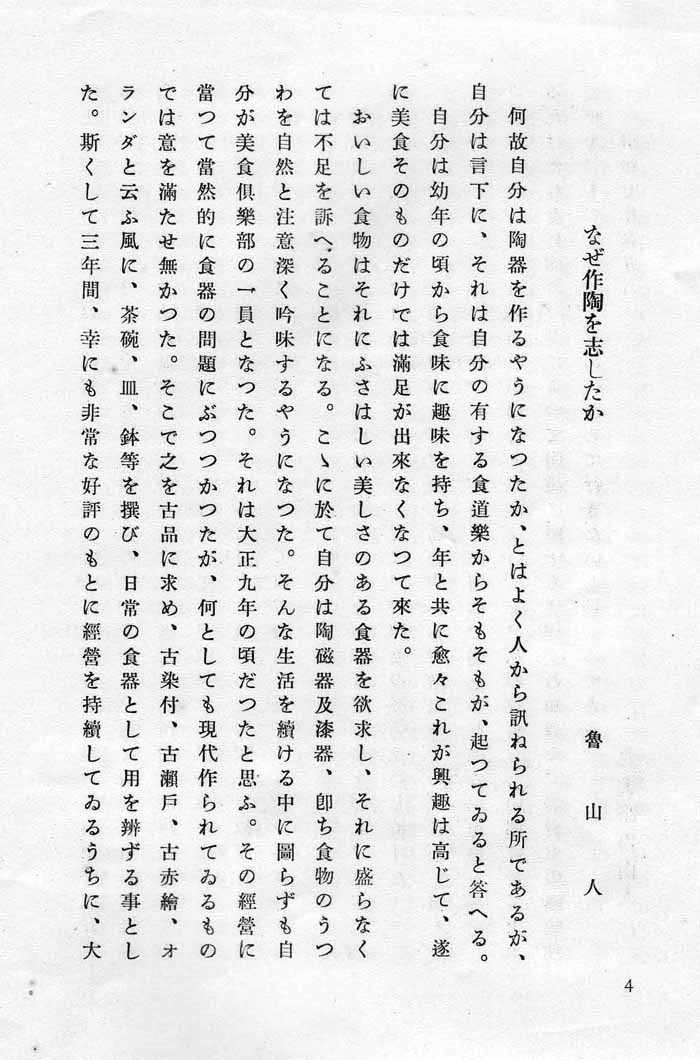 なぜ作陶を志したか
魯山人
何故自分は陶器を作るやうになつたか、とはよく人から訊ねられる所であるが、
自分は言下に、それは自分の有する食道樂からそもそもが、起つてゐると答へる。
自分は幼年の頃から食味に趣味を持ち、年と共に愈々これが興趣は高じて、遂
に美食そのものだけでは滿足が出來なくなつて來た。
おいしい食物はそれにふさはしい美しさのある食器を欲求し、それに盛らなく
ては不足を訴へることになる。こゝに於て自分は陶磁器及漆器、卽ち食物のうつ
わを自然と注意深く吟味するやうになつた。そんな生活を續ける中に圖らずも自
分が美食俱樂部の一員となつた。それは大正九年の頃だつたと思ふ。その經營に
當つて當然的に食器の問題にぶつつかつたが、何としても現代作られてゐるもの
では意を滿たせ無かつた。そこで之を古品に求め、古染付、古瀨戶、古赤繪、オ
ランダと云ふ風に、茶碗、皿、鉢等を撰び、日常の食器として用を辨ずる事とし
た。斯くして三年間、幸にも非常な好評のもとに經營を持續してゐるうちに、大
4